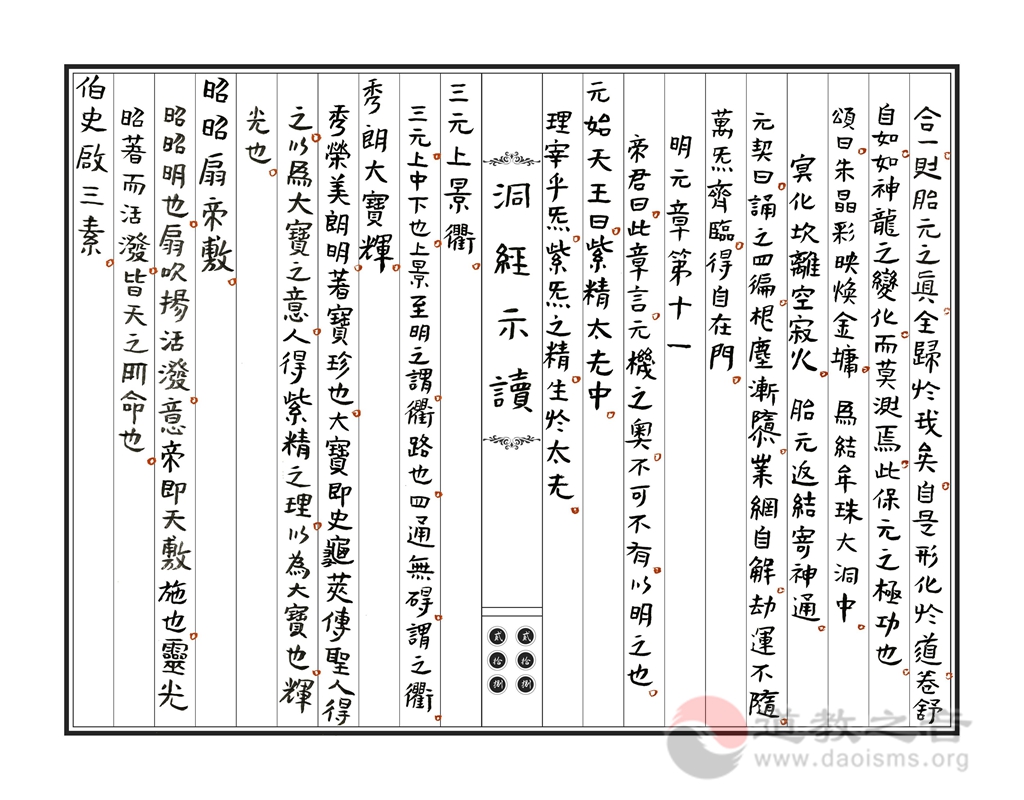 合一則胎元之眞全歸於我矣自是形化於道卷舒
自如如神龍之變化而莫測焉此保元之極功也
頌曰朱晶彩映煥金墉 爲結牟珠大洞中
冥化坎離空寂火 胎元返結寄神通
元契曰誦之四徧根塵漸隳業網自解劫運不隨
萬炁齊臨得自在門
明元章第十一
帝君曰此章言元機之奧不可不有以明之也
元始天王曰紫精太无中
理宰乎炁紫炁之精生於太无
洞經示讀
貳拾捌
貳拾捌
三元上景衢
三元上中下也上景至明之謂衢路也四通無碍謂之衢
秀朗大寶輝
秀榮美朗明著寶珍也大寶即史龜莢傳聖人得
之以爲大寶之意人得紫精之理以為大寶也輝
光也
昭昭扇帝敷
昭昭明也扇吹揚活潑意帝即天敷施也靈光
昭著而活潑皆天之明命也
伯史啟三素
道教之音
www.daoisms.org